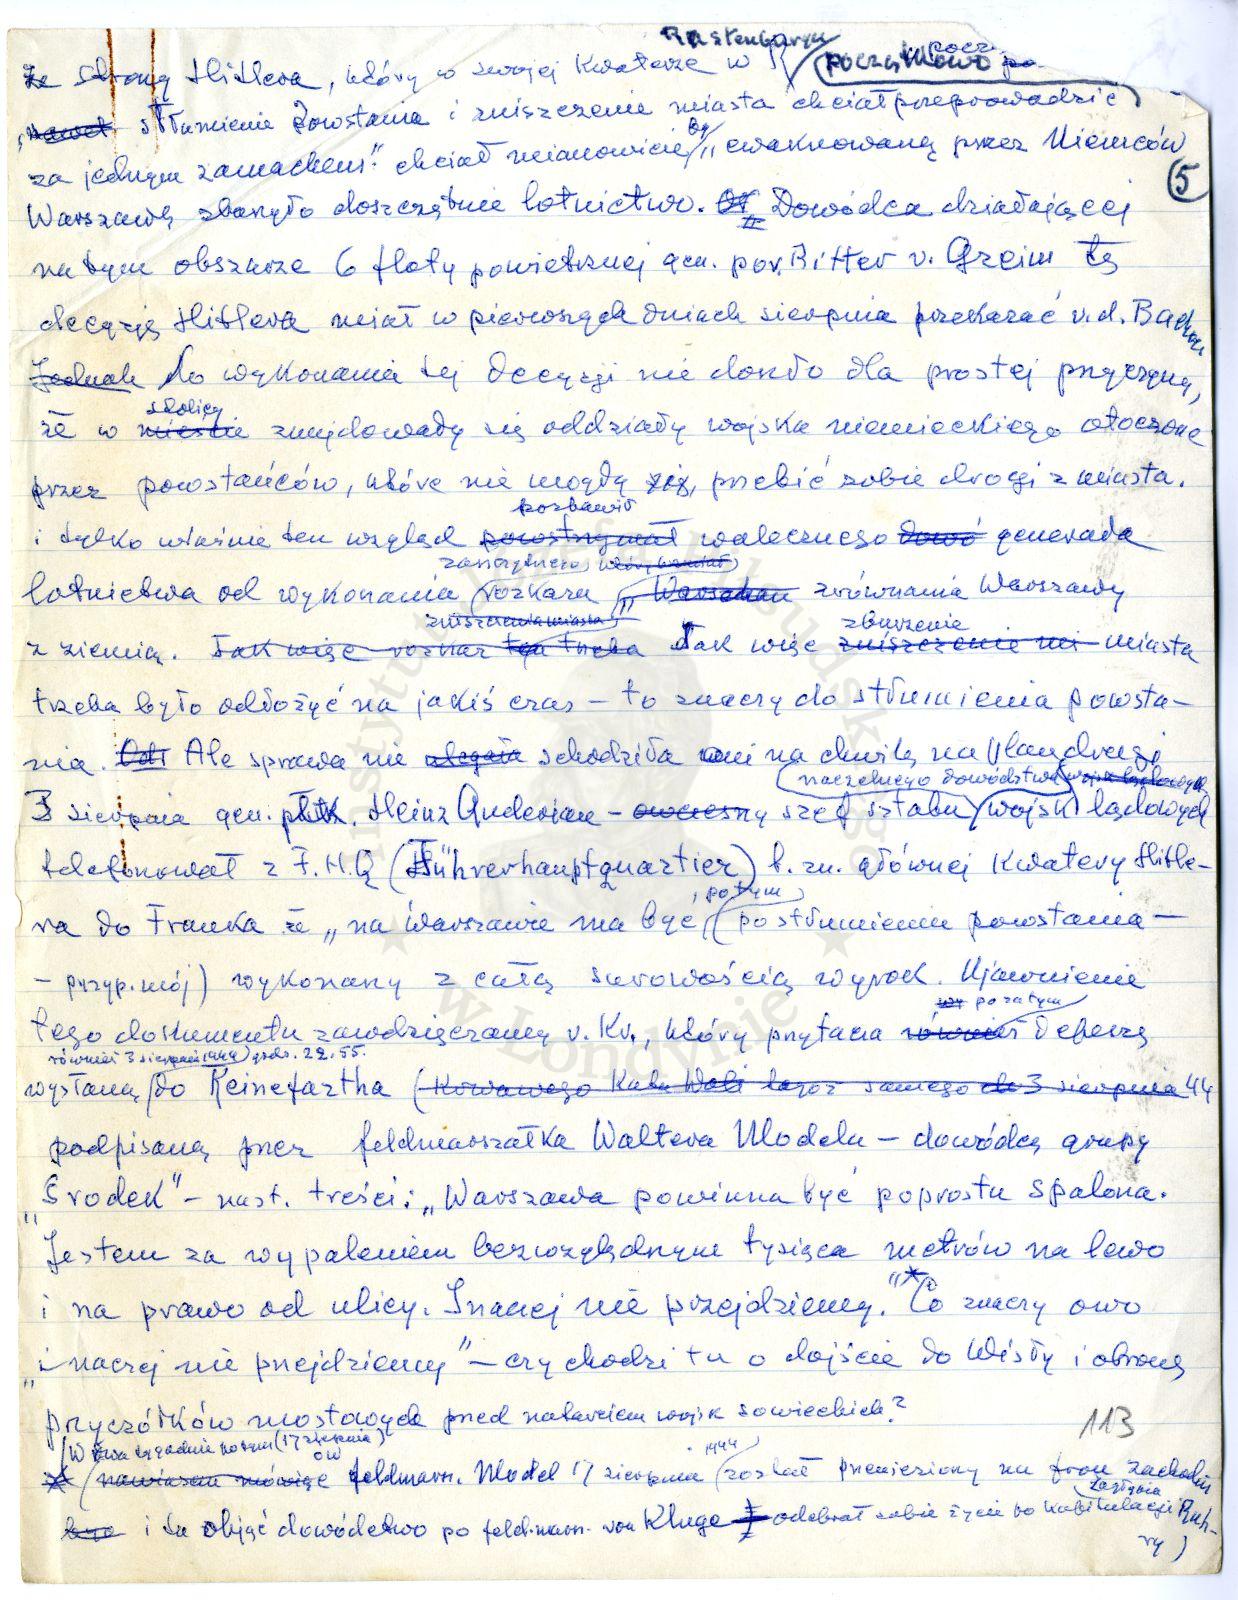 Rastenburgu
ze strony Hitlera, który w swojej Kwaterze w początkowo
nawet stłumienie Powstania i zniszczenie miasta chciał przeprowadzić
za jednym zamachem: chciał mianowicie by "ewakuowaną przez Niemców
5
Warszawę zburzyło doszczętnie lotnictwo. Dowódca działającej
na tym obszarze 6 floty powietrznej gen. por. Ritter v. Greim tę
decyzję Hitlera miał w pierwszych dniach sierpnia przekazać v.d. Bachow
Jednak do wykonania tej decyzji nie doszło dla prostej przyczyny,
stolicy
że w mieście znajdowały się oddziały wojska niemieckiego otoczone
przez powstańców, które nie mogły się, przebić sobie drogi z miasta.
pozbawił
i tylko właśnie ten wzgląd powstrzymał walecznego dowó generała
zaszczytnego
lotnictwa od wykonania rozkazu "Warschau zrównania Warszawy
zniszczenia miasta zburzenie
z ziemią. Tak więc rozkaz ten trzeba Tak więc zniszczenie mi miasta
trzeba było odłożyć na jakiś czas – to znaczy do stłumienia powsta-
nia. Ale sprawa nie uległa schodziła ani na chwilę na plan drugi
naczelnego dowództwa wojsk lądowych
3 sierpnia gen. płk. Heinz Guderian – owczesny szef sztabu wojsk lądowych
telefonował z F.H.Q (Führerhauptquartier) t. zn. głównej Kwatery Hitle-
, potym
ra do Franka że "na Warszawie ma być (po stłumieniu powstania –
– przyp. mój) wykonany z całą surowością wyrok. Ujawnienie
poza tym
tego dokumentu zawdzięczamy v. Kr., który przytacza również depeszę
również 3 sierpnia 1944 godz. 22.55.
wysłaną do Reinefartha ( 3 sierpnia 44
podpisaną przez feldmarszałka Waltera Modela – dowódcę grupy
"Środek" – nast. treści: "Warszawa powinna być poprostu spalona.
Jestem za wypaleniem bezwzględnym tysiąca metrów na lewo
i na prawo od ulicy. Inaczej nie przejdziemy."* Co znaczy owo
"inaczej nie przejdziemy" – czy chodzi tu o dojście do Wisły i obronę
przyczółków mostowych przed natarciem wojsk sowieckich?
113
(W dwa tygodnie potym (17 sierpnia)
ow 1944
* (nawiasem mówiąc feldmarsz. Model 17 sierpnia został przeniesiony na fron zachodni
zagłębia
i tu objąć dowództwo po feldmarsz. von Kluge odebrał sobie życie po kapitulacji Ruh-
ry)
Instytut Józefa Piłsudskiego
w Londynie